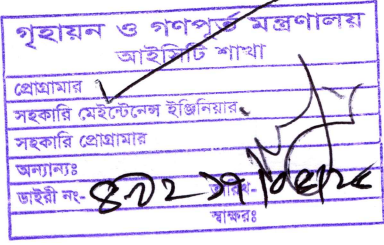 গৃহায়ন ও গণপূর্ত মন্ত্রণালয়
আইসিটি শাখা
প্রোগ্রামার
সহকারি মেইন্টেনেন্স ইঞ্জিনিয়ার
সহকারি প্রোগ্রামার
অন্যান্যঃ
ডাইরী নং- তারিখ-
স্বাক্ষরঃ